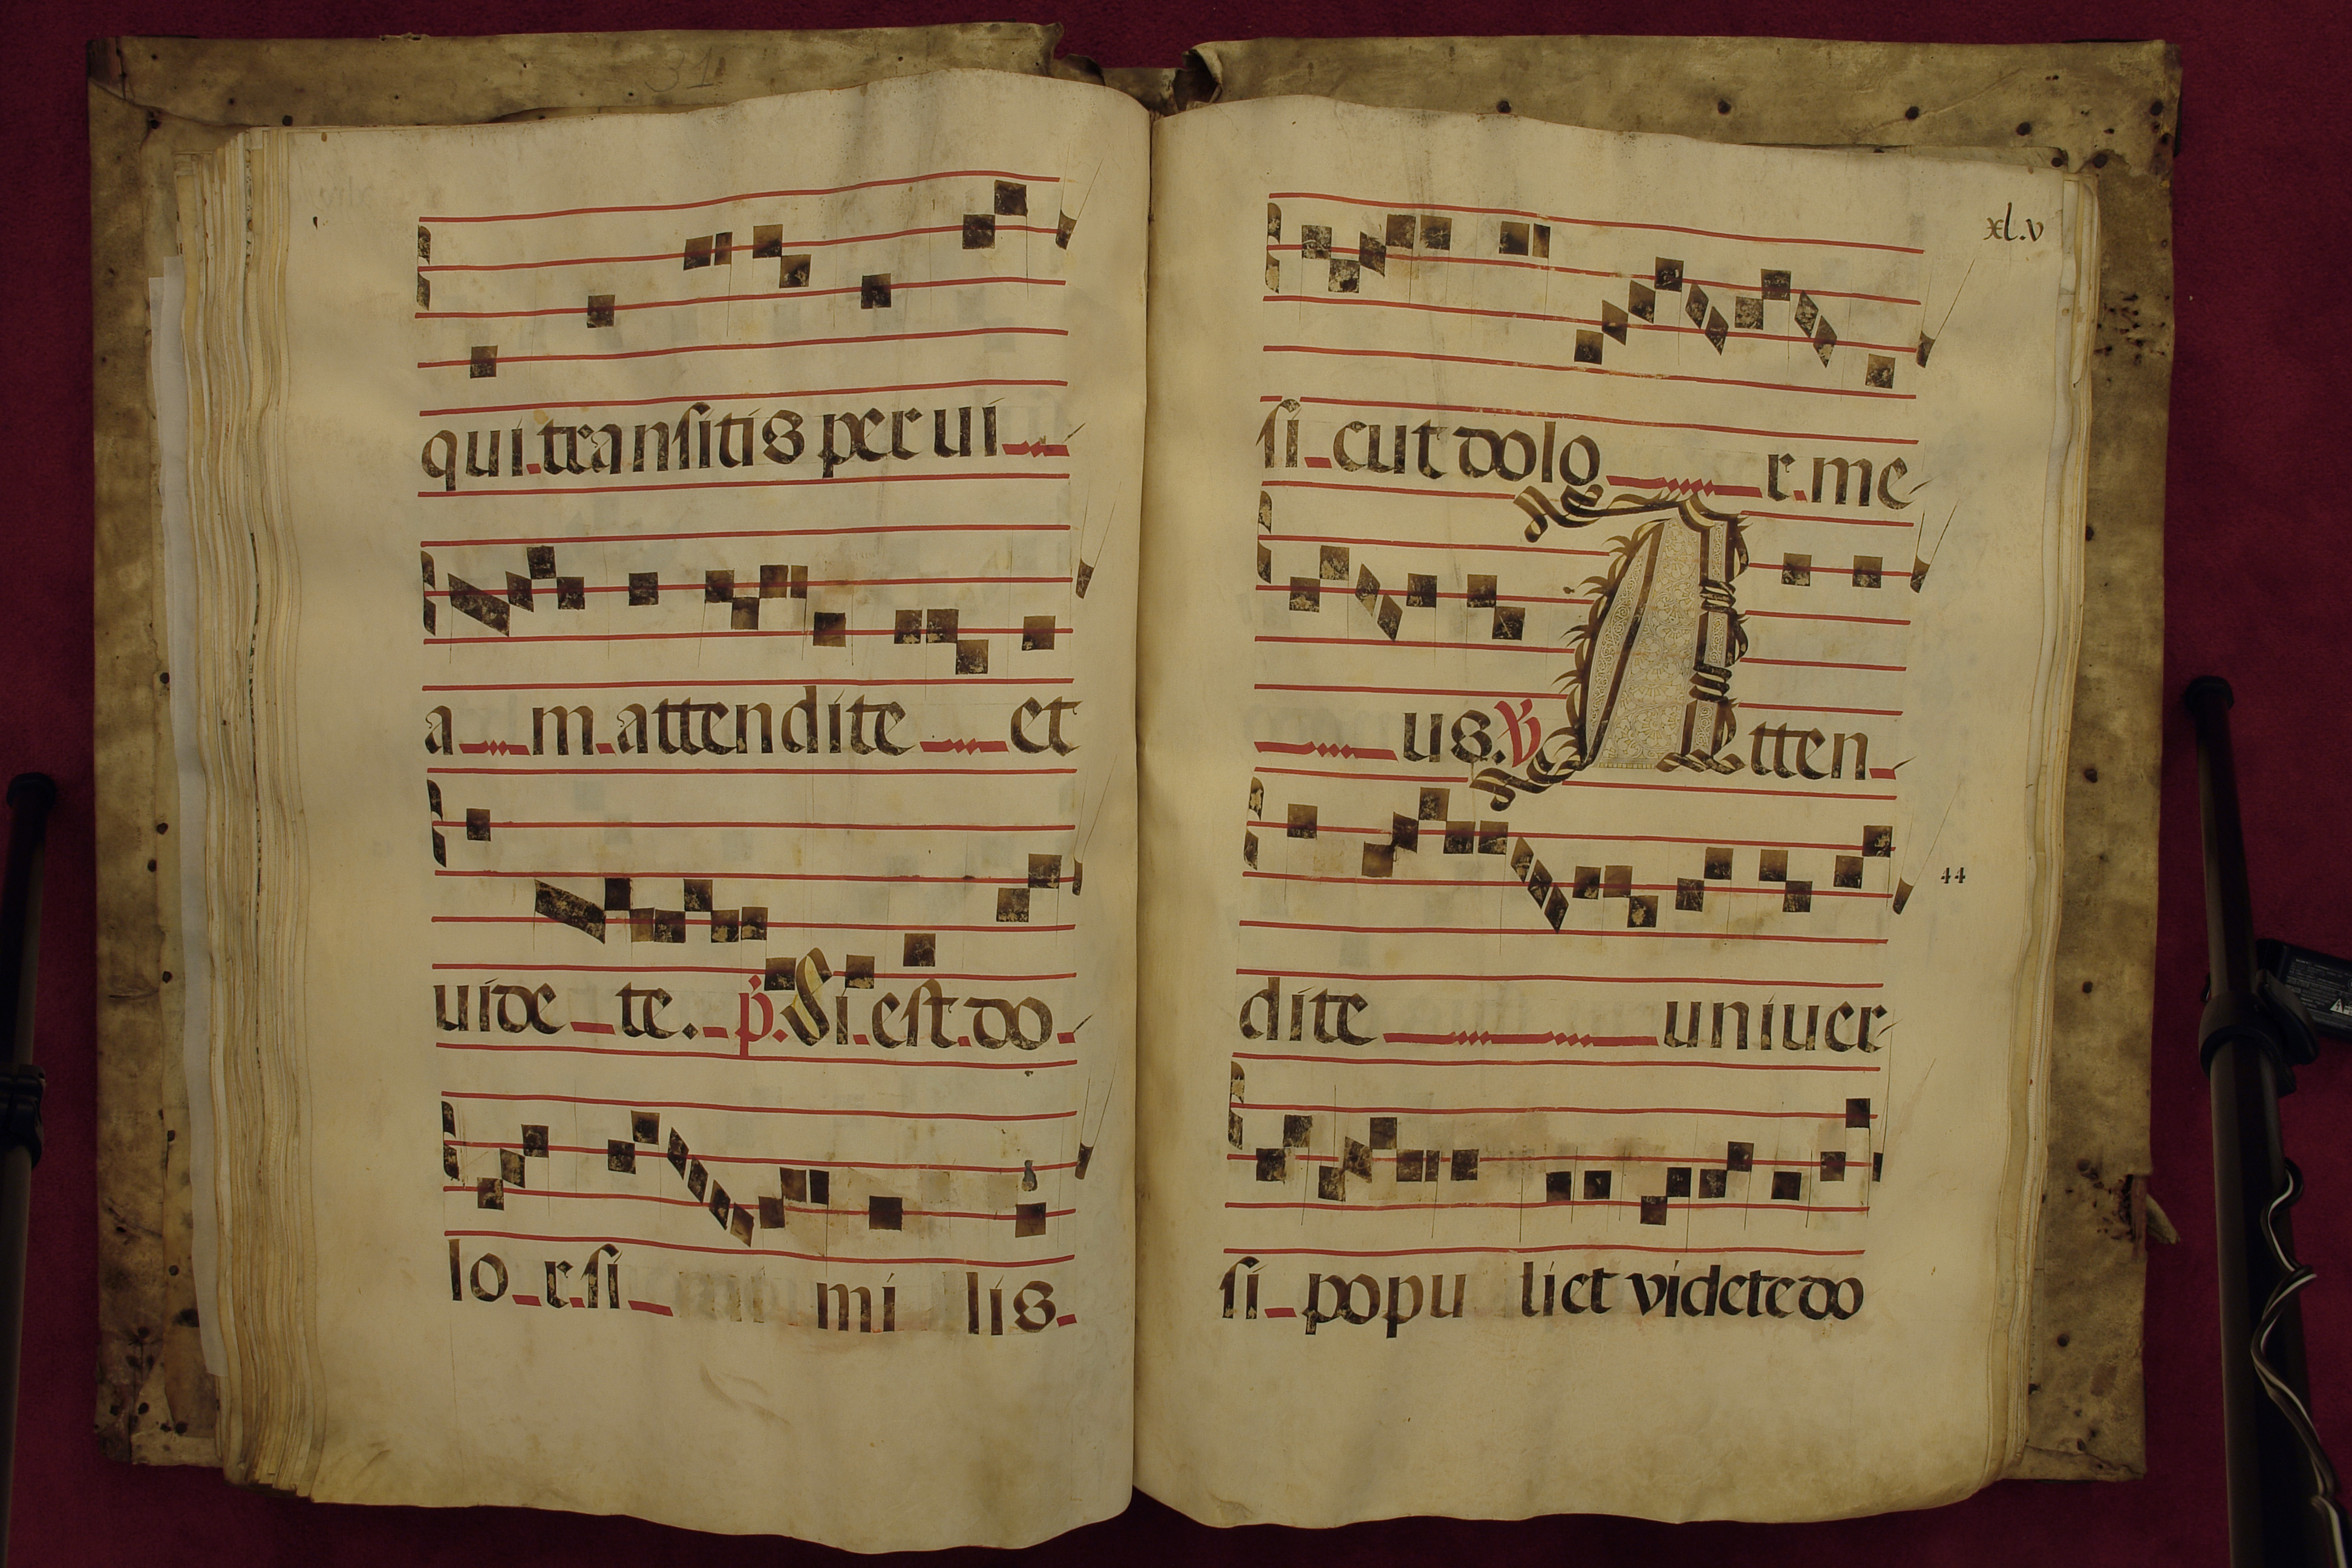 31
qui transitis per ui
a m attendite et
uide te. p. Si est do
lo r si mi lis
xl.v
si cut dolo r me
us. ℣ Atten
44
dite uniuer
si popu li et videte do